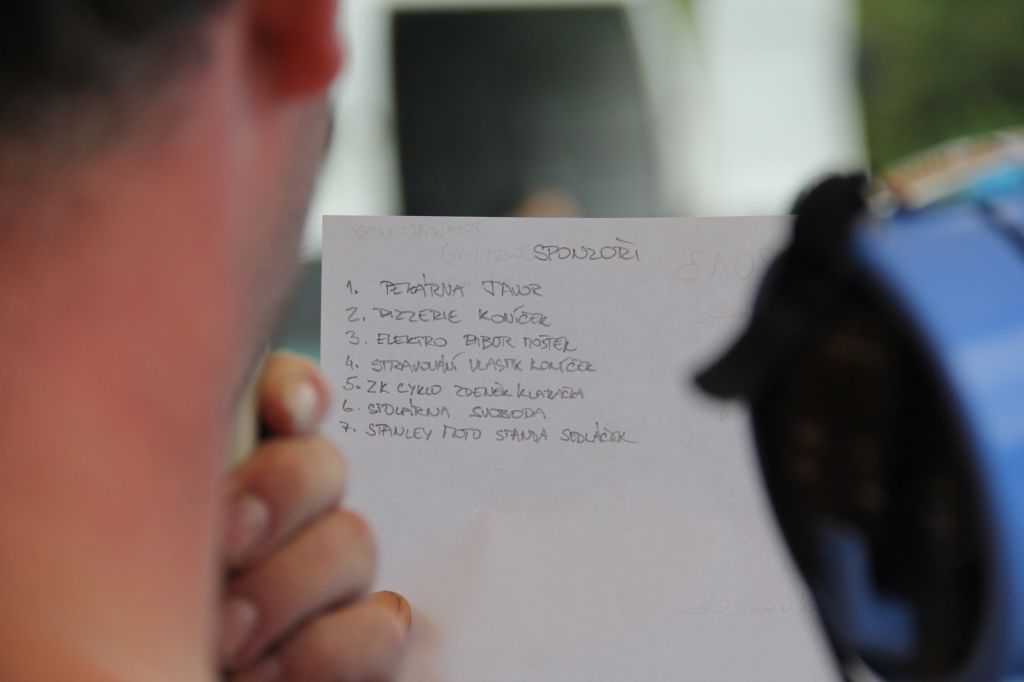 SPONZOŘI
1. PEKÁRNA JAVOR
2. PIZZERIE KONÍČEK
3. ELEKTRO LIBOR MOŠTĚK
4. STRAVOVÁNÍ VLASTIK KONÍČEK
5. ZK CYKLO ZDENĚK KLABAČKA
6. STOLÁRNA SVOBODA
7. STANLEY MOTO STANDA SEDLÁČEK